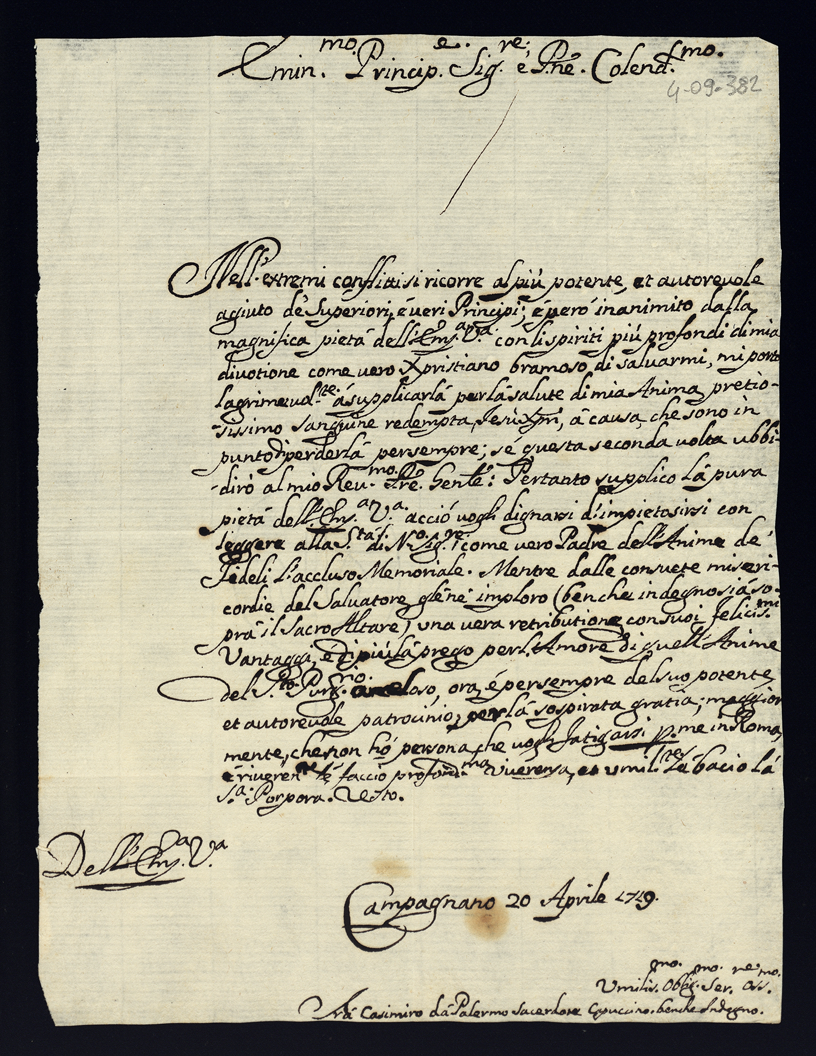 Emin.mo Princip.e Sig.re, e Pne. Colend.smo
4-09-382
Nell'extremi conflitti si ricorre al più potente, et autorevole
agiuto dè Superiori, è veri Principi; è però inanimito dalla
magnifica pietà dell'Em.a V.a con li spiriti più profondi di mia
divotione come vero Xpristiano bramoso di salvarmi, mi porto
lagrimevol.te à supplicarlà per là salute di mia Anima pretio-
sissimo sanguine redempta Jesu Xpi, à causa, che sono in
punto di perderlà per sempre; sè questa seconda volta ubbi-
dirò al mio Reu.mo Pre. Gente: Pertanto supplico là pura
pietà dell'Em.a V.a acciò vogli dignarsi d'impietosirsi con
leggere alla S.tà di N.ro Sig.re, come vero Padre dell'Anime dè
Fedeli L'accluso Memoriale. Mentre dalle consuete miseri-
cordie del Salvatore glènè imploro (benche indegno sia so-
prà il Sacro Altare) una vera retributione con suoi felicis.mi
Vantaggi, è di più là prego per l'Amore di quell'Anime
del S.to Purg.rio
laso, ora, è per sempre del suo potente,
et autorevole patrocinio, per là sospirata gratia; maggior
mente, che non hò persona, che vogli fatigarsi p. me in Roma,
è riveren.te lè faccio profond.ma riverenza, et umil.te là bacio là
S.a Porpora. Resto.
Dell'Em.a V.a
Campagnano 20 Aprile 1719.
Umilis.mo Oblig.mo Ser.re Oss.mo
Frà Casimiro dà Palermo Sacerdote Capuccino. benche Indegno.